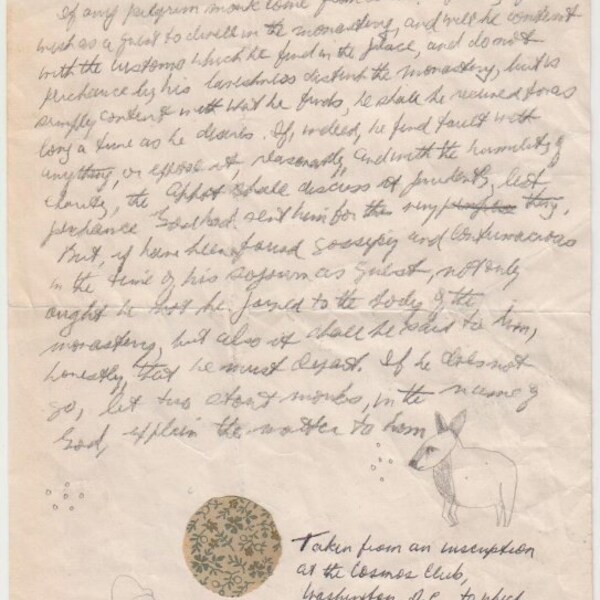 If any pilgrim monk come from
wish as a guest to dwell in the monastery, and will be content
with the customs which he find in the place, and do not
perchance by his lavishness disturb the monastery, but is
simply content with what he finds, he shall be received for as
long a time as he desires. If, indeed, he find fault with
anything, or expose it, reasonably, and with the humility of
charity, the Abbot shall discuss it prudently, lest
perchance God had sent him for this very thing.
But, if have been found gossipy and contumacious
in the time of his sojourn as guest, not only
ought he not be joined to the body of the
monastery, but also it shall be said to him,
honestly, that he must depart. If he does not
go, let two stout monks, in the name of
God, explain the matter to him
Taken from an inscription
at the Cosmos Club,
Washington, D.C. to which